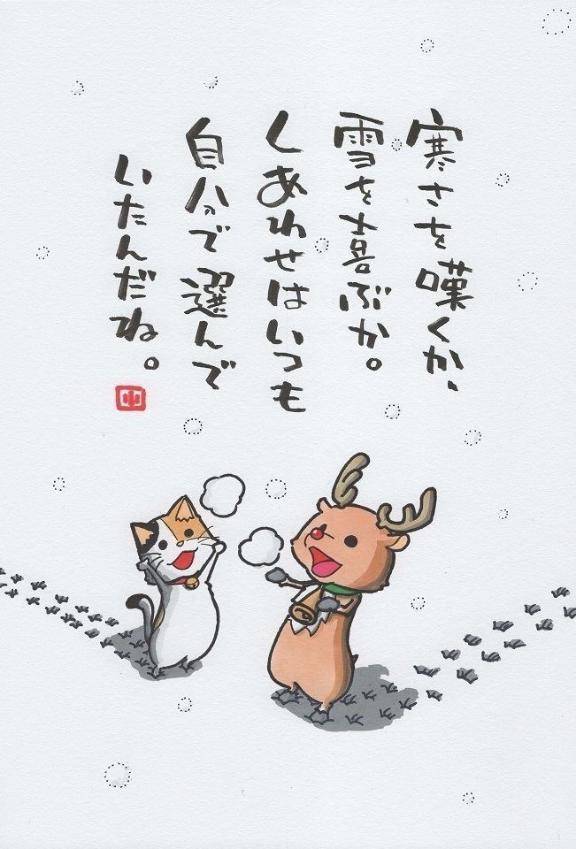 寒さを嘆くか、
雪を喜ぶか。
しあわせはいつも
自分で選んで
いたんだね。